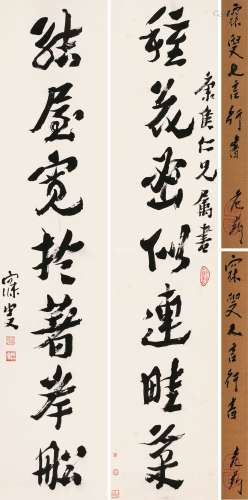 種花密似連畦菜
秉侯仁兄屬書
結屋寬於著岸船
寐叟
寐叟七言行書
寐叟七言行書